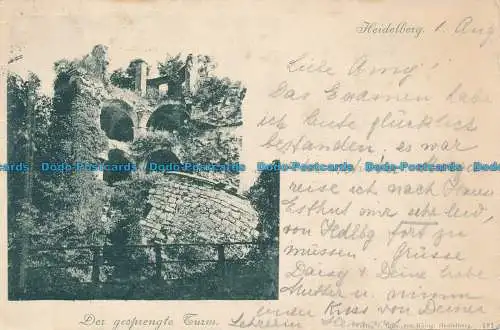 Heidelberg. 1. Aug
Liebe Amy!
Das Examen habe
ich heute glücklich
bestanden, es war
reise ich nach
Es thut mir sehr leid,
von Hdlbg fort zu
müssen. Grüsse
Daisy & Deine liebe
Mutter u. nimm
einen Kuss von Deiner
Lehrerin
Der gesprengte Turm.
Dodo-Postcards Dodo-Postcards Dodo-Postcards Dodo-Postcards Dodo-Postcards